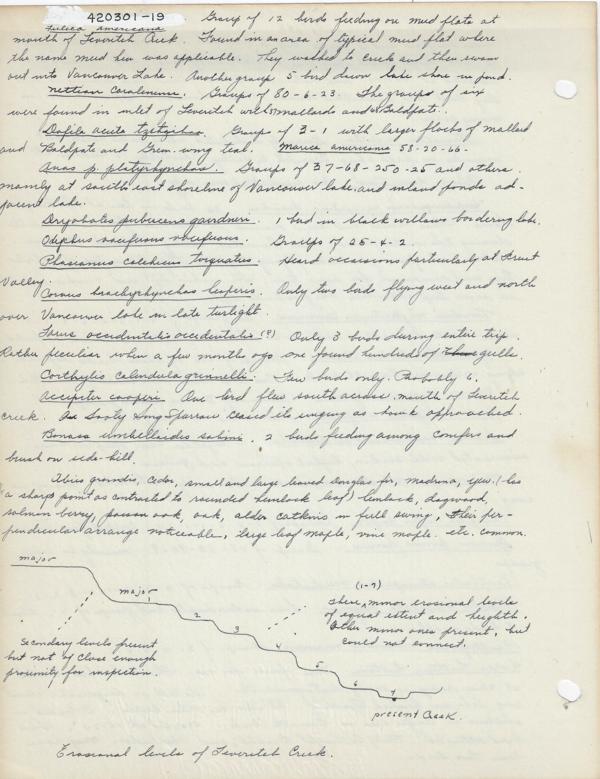 420301-19
Fulica americana Group of 12 birds feeding on mud flats at
mouth of Leveritch Creek. Found in an area of typical mud flat where
the name mud hen was applicable. They washed to creek and then swam
out into Vancouver Lake. Another group 5 bird down lake shore in pond.
Nettion carolinense. Groups of 80-6-23. The groups of six
were found in inlet of Leveritch with mallards and Baldpate.
Dafila acuta tzitzihoa. Groups of 3-1 with larger flocks of mallard
and Baldpate and Green-wing teal. Mareca americana 58-20-66-
Anas p. platyrhynchos. Groups of 37-68-250-25 and others.
mainly at south east shoreline of Vancouver lake and inland ponds ad-
jacent lake.
Dryobates pubescens gairdneri. 1 bird in black willows bordering lake.
Oxyechus vociferus vociferus. Groups of 25-4-2.
Phasianus colchicus torquatus. Heard occasions particularly at Fruit
Valley.
Corvus brachyrhynchos hesperis. Only two birds flying west and north
over Vancouver lake in late twilight.
Larus occidentalis occidentalis (?) Only 3 birds during entire trip.
Rather peculiar when a few months ago one found hundreds of gulls.
Corthylio calendula grinnelli. Few birds only. Probably 6.
Accipiter cooperi. One bird flew south across mouth of Leveritch
creek. A Sooty Song Sparrow ceased its singing as hawk approached.
Bonasa umbelloides sabini. 2 birds feeding among conifers and
brush on side-hill.
Abies grandis, cedar, small and large leaved Douglas fir, madrona, yew. (has
a sharp point as contrasted to rounded hemlock leaf) hemlock, dogwood,
salmon berry, poison oak, oak, alder catkins in full swing, their per-
pendicular arrange noticeable, large leaf maple, vine maple. etc. common.
major
major
1
2
3
4
5
6
7
(1-7)
These minor erosional levels
of equal extent and heighth.
Other minor ones present, but
could not connect.
Secondary levels present
but not of close enough
proximity for inspection.
present Creek.
Erosional levels of Leveritch Creek.